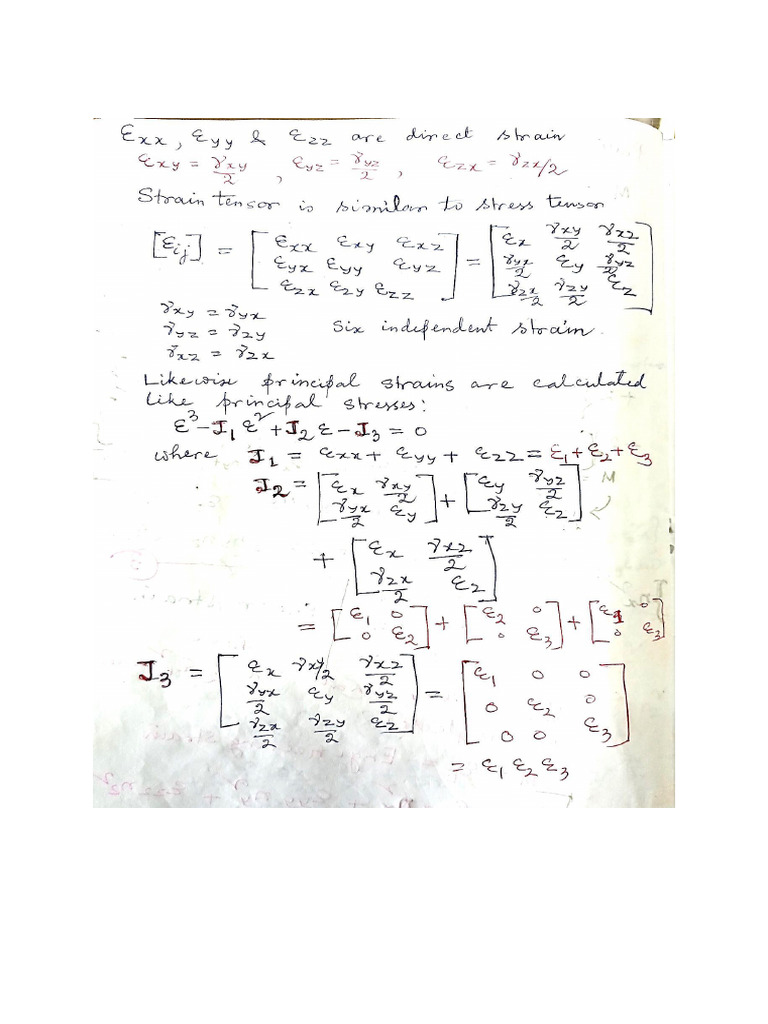 εxx, εyy & εzz are direct strain
εxy = γxy/2 , εyz = γyz/2 , εzx = γzx/2
Strain tensor is similar to stress tensor
[εij] = [εxx εxy εxz; εyx εyy εyz; εzx εzy εzz] = [εx γxy/2 γxz/2; γyx/2 εy γyz/2; γzx/2 γzy/2 εz]
γxy = γyx
γyz = γzy Six independent strain.
γxz = γzx
Likewise principal strains are calculated
like principal stresses:
ε³ - J₁ε² + J₂ε - J₃ = 0
where J₁ = εxx + εyy + εzz = ε₁ + ε₂ + ε₃
J₂ = [εx γxy/2; γyx/2 εy] + [εy γyz/2; γzy/2 εz] M
+ [εx γxz/2; γzx/2 εz]
= [ε₁ 0; 0 ε₂] + [ε₂ 0; 0 ε₃] + [ε₁ 0; 0 ε₃]
J₃ = [εx γxy/2 γxz/2; γyx/2 εy γyz/2; γzx/2 γzy/2 εz] = [ε₁ 0 0; 0 ε₂ 0; 0 0 ε₃]
= ε₁ ε₂ ε₃